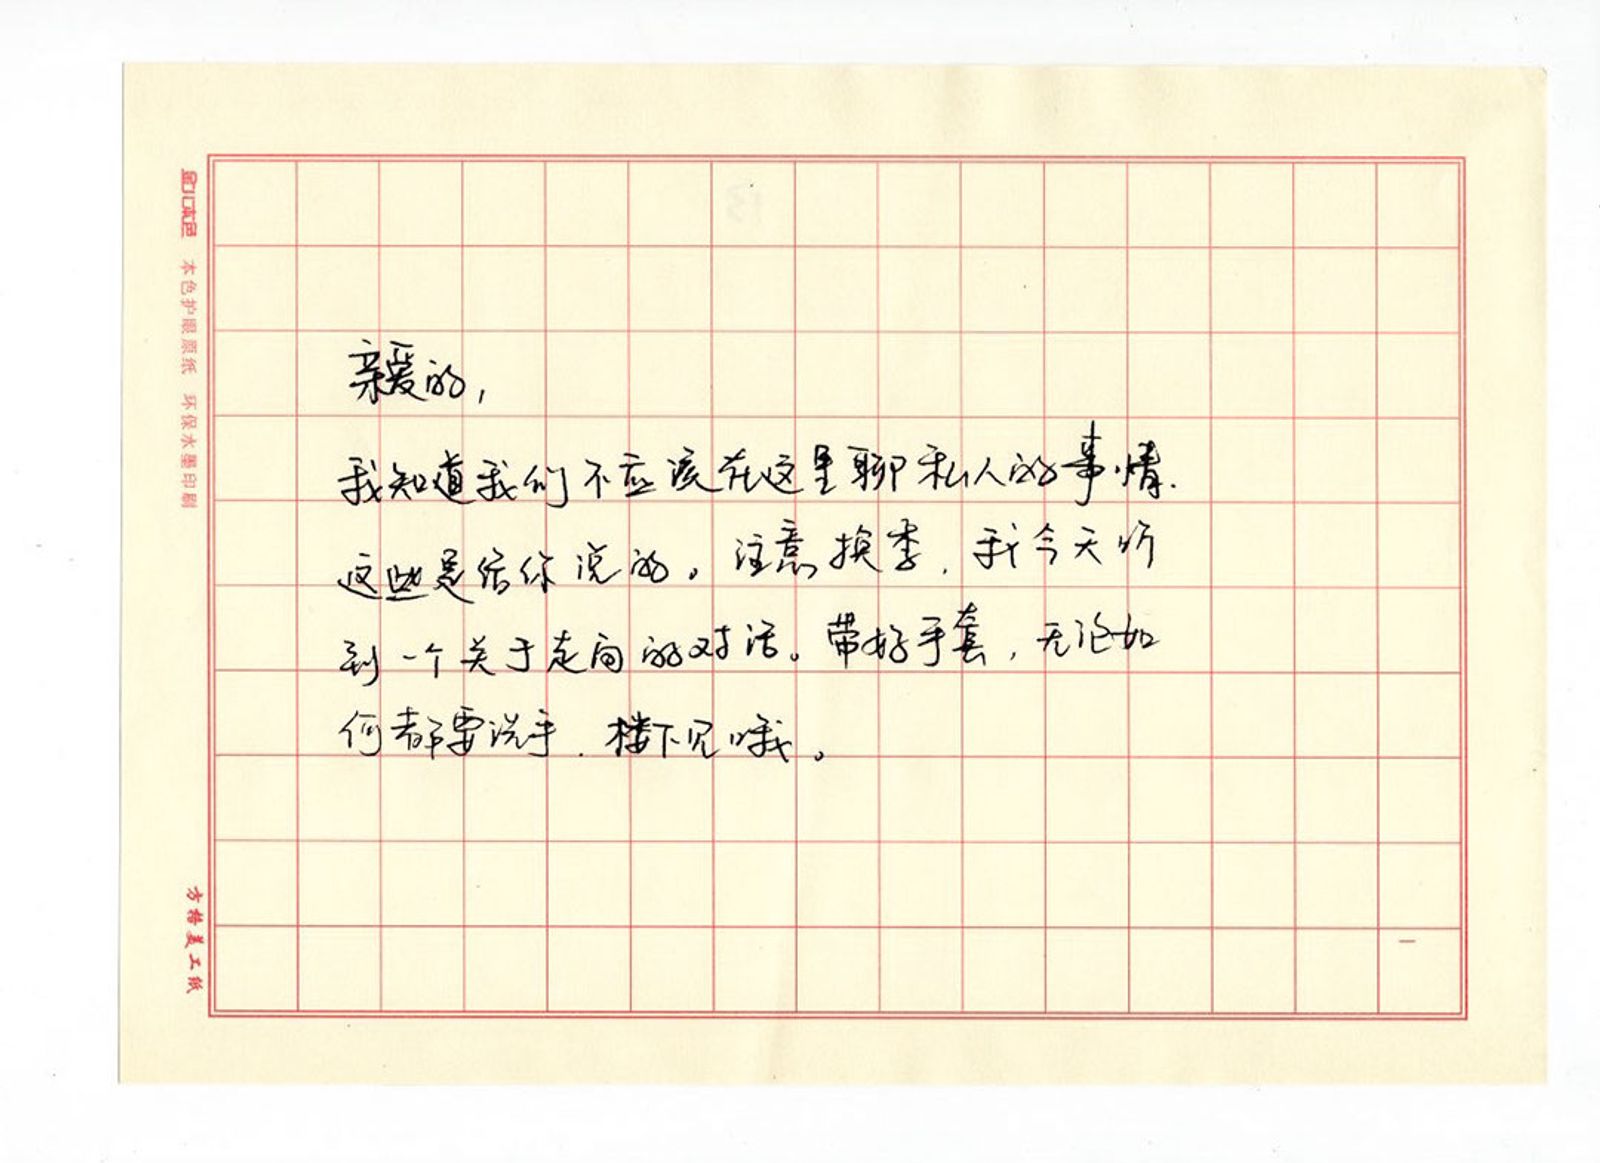 本色护眼原纸 环保水墨印刷
方格美工纸
亲爱的,
我知道我们不应该在这里聊私人的事情.
这些是给你说的。注意换季,我今天听
到一个关于走向的对话。带好手套,无论如
何都要洗手.楼下见哦。
一